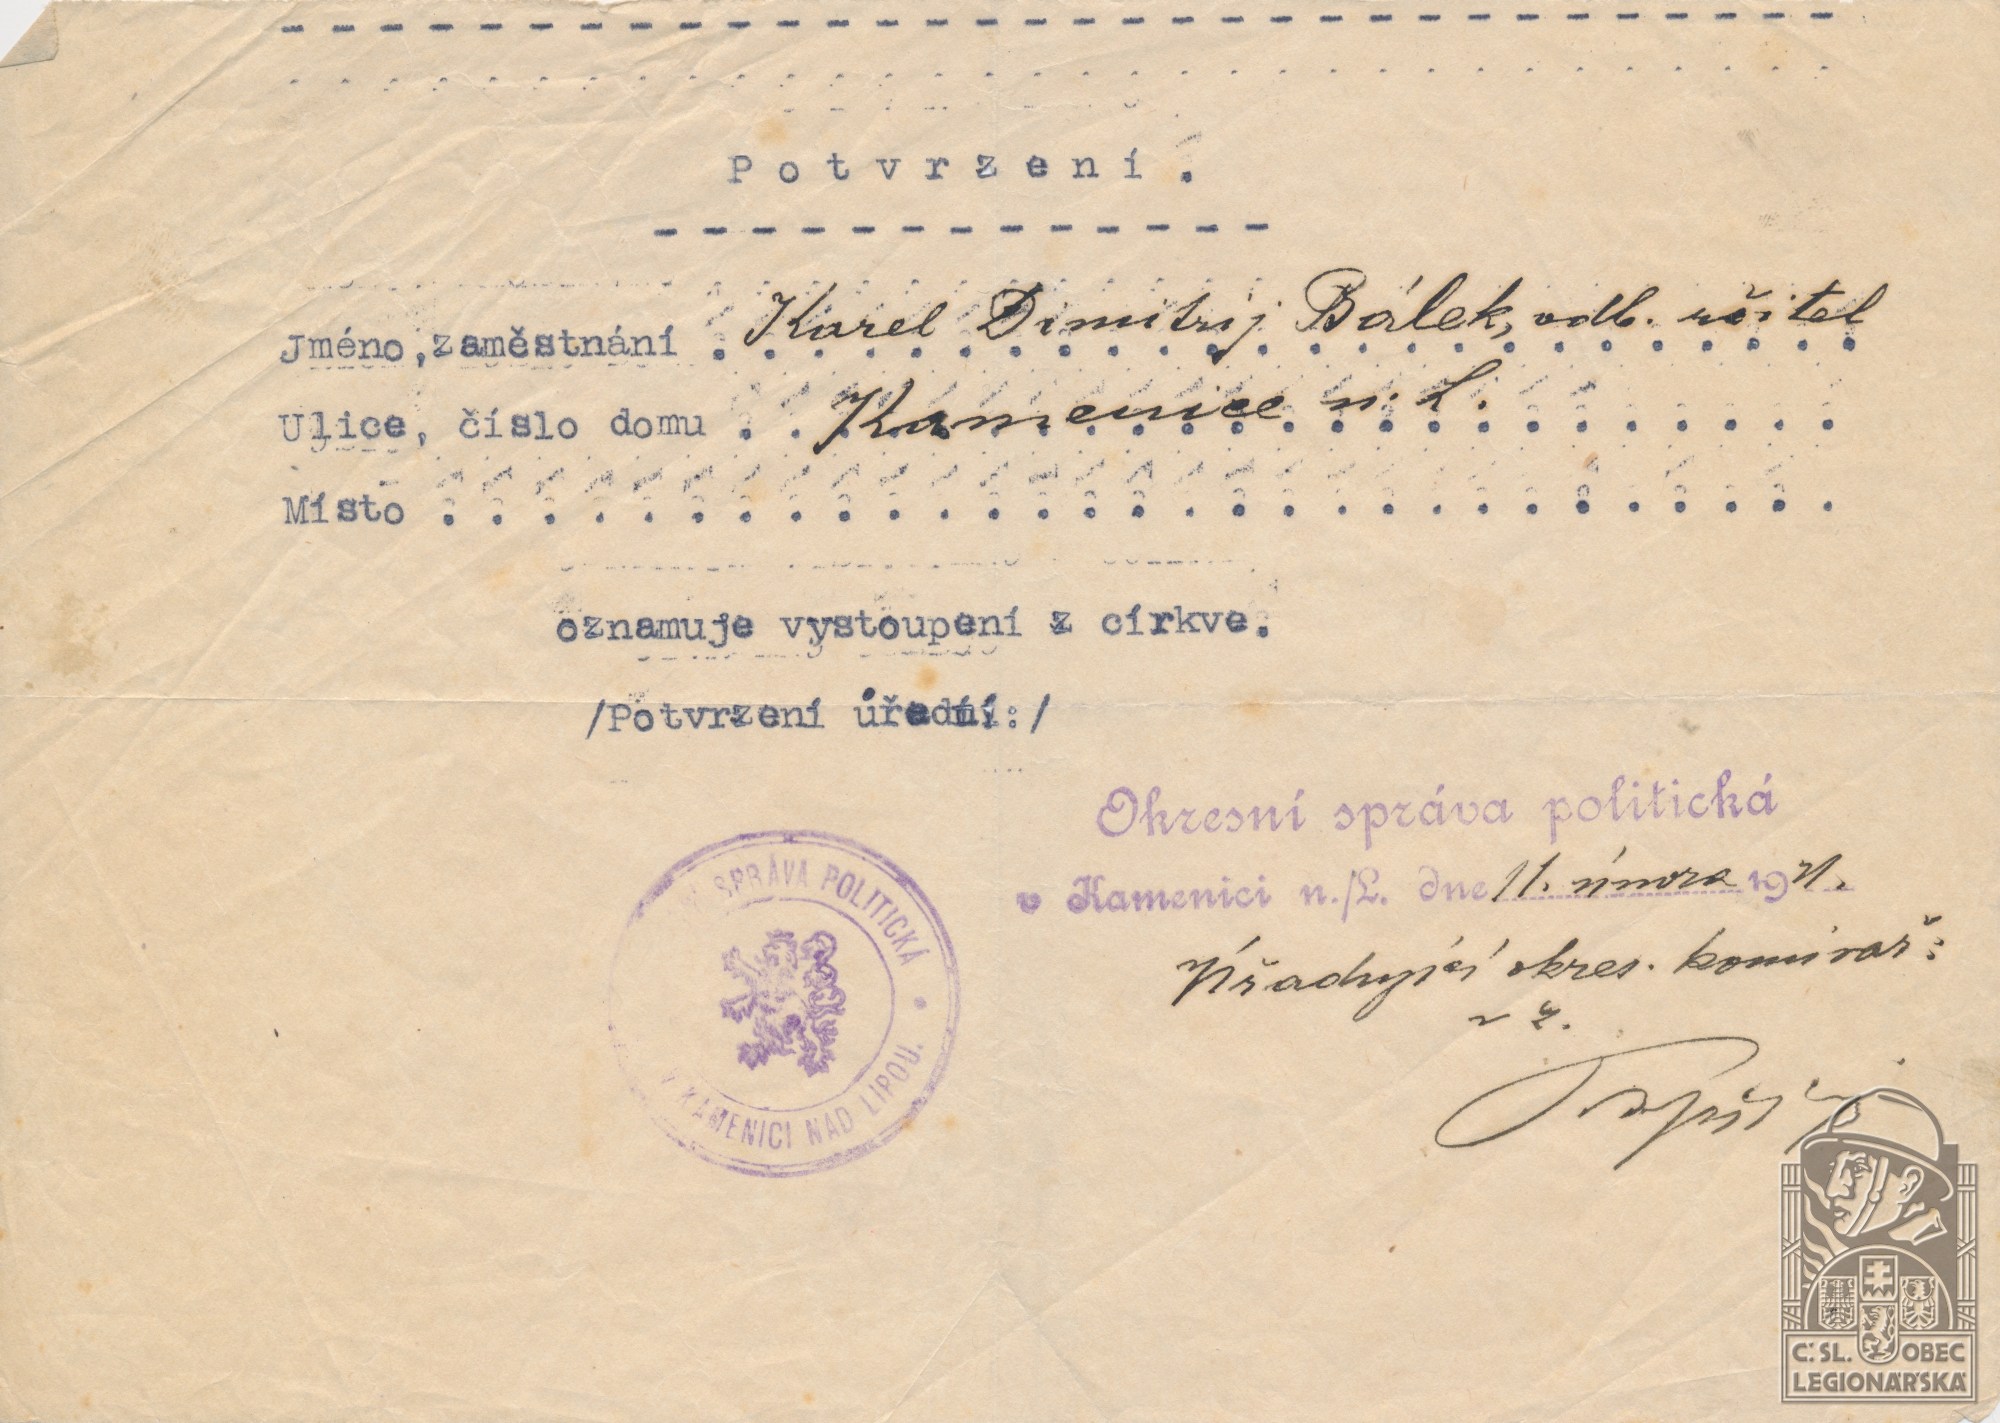 Potvrzení.
Jméno, zaměstnání Karel Dimitrij Bálek, odb. učitel
Ulice, číslo domu Kamenice n. L.
Místo
oznamuje vystoupení z církve.
/Potvrzení úřední:/
Okresní správa politická
v Kamenici n./L. dne 11. února 1921.
Úřadující okres. komisař:
v z.
SPRÁVA POLITICKÁ
V KAMENICI NAD LIPOU.
Č. SL. OBEC
LEGIONÁŘSKÁ